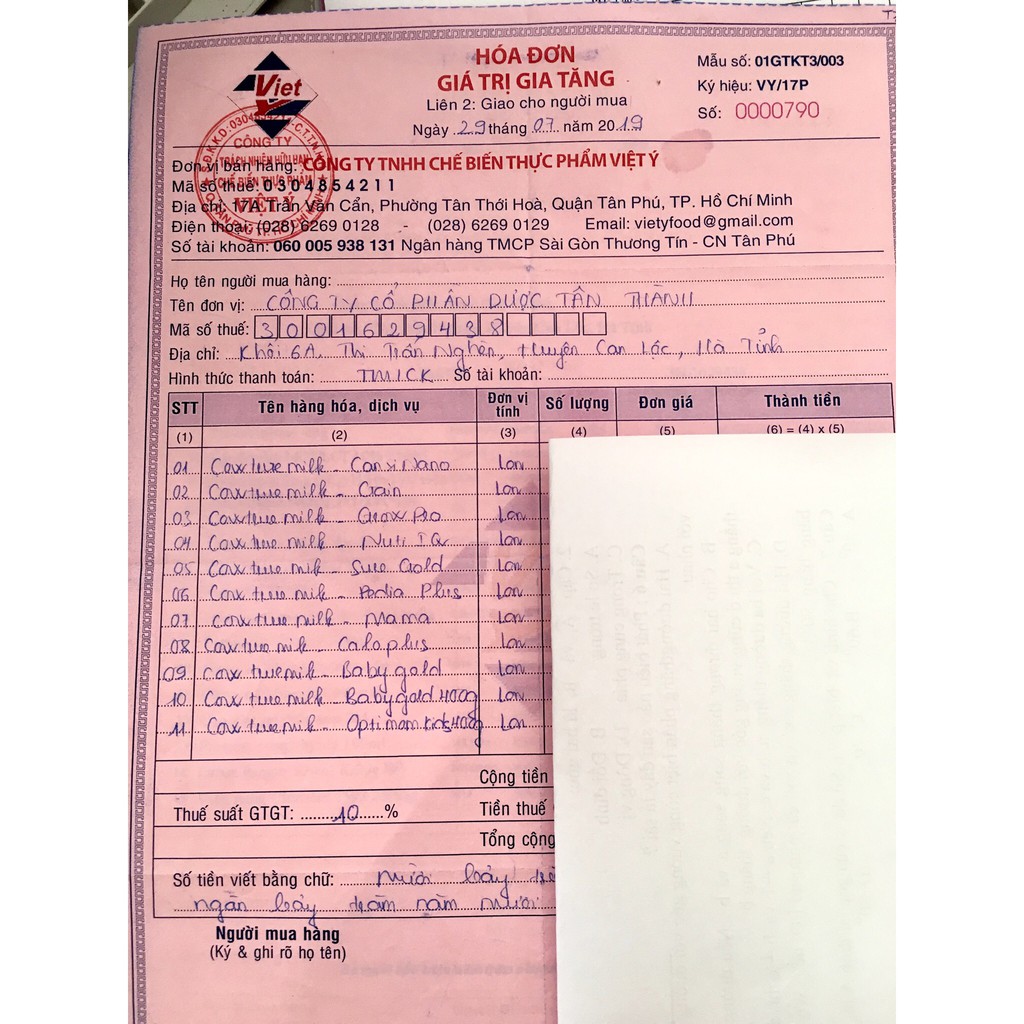 HÓA ĐƠN
GIÁ TRỊ GIA TĂNG
Liên 2: Giao cho người mua
Ngày 29 tháng 07 năm 2019
Mẫu số: 01GTKT3/003
Ký hiệu: VY/17P
Số: 0000790
Viet
CÔNG TY
TRÁCH NHIỆM HỮU HẠN
CHẾ BIẾN THỰC PHẨM
VIỆT Ý
Đơn vị bán hàng: CÔNG TY TNHH CHẾ BIẾN THỰC PHẨM VIỆT Ý
Mã số thuế: 0304854211
Địa chỉ: 17A Trần Văn Cẩn, Phường Tân Thới Hoà, Quận Tân Phú, TP. Hồ Chí Minh
Điện thoại: (028) 6269 0128 - (028) 6269 0129 Email: vietyfood@gmail.com
Số tài khoản: 060 005 938 131 Ngân hàng TMCP Sài Gòn Thương Tín - CN Tân Phú
Họ tên người mua hàng:
Tên đơn vị: CÔNG TY CỔ PHẦN DƯỢC TÂN THÀNH
Mã số thuế: 3001629438
Địa chỉ: Khối 6A, Thị Trấn Nghèn, Huyện Can Lộc, Hà Tỉnh
Hình thức thanh toán: TM/CK Số tài khoản:
STT Tên hàng hóa, dịch vụ Đơn vị tính Số lượng Đơn giá Thành tiền
(1) (2) (3) (4) (5) (6) = (4) x (5)
01 Cow true milk - Canxi Nano Lon
02 Cow true milk - Gain Lon
03 Cow true milk - Grow Pro Lon
04 Cow true milk - Nuti IQ Lon
05 Cow true milk - Sure Gold Lon
06 Cow true milk - Pedia Plus Lon
07 Cow true milk - Mama Lon
08 Cow true milk - Calo plus Lon
09 Cow true milk - Baby gold Lon
10 Cow true milk - Baby gold 400g Lon
11 Cow true milk - Optimom kids 400g Lon
Cộng tiền
Thuế suất GTGT: 10 % Tiền thuế
Tổng cộng
Số tiền viết bằng chữ: Mười bảy
ngàn bảy trăm năm mươi
Người mua hàng
(Ký & ghi rõ họ tên)